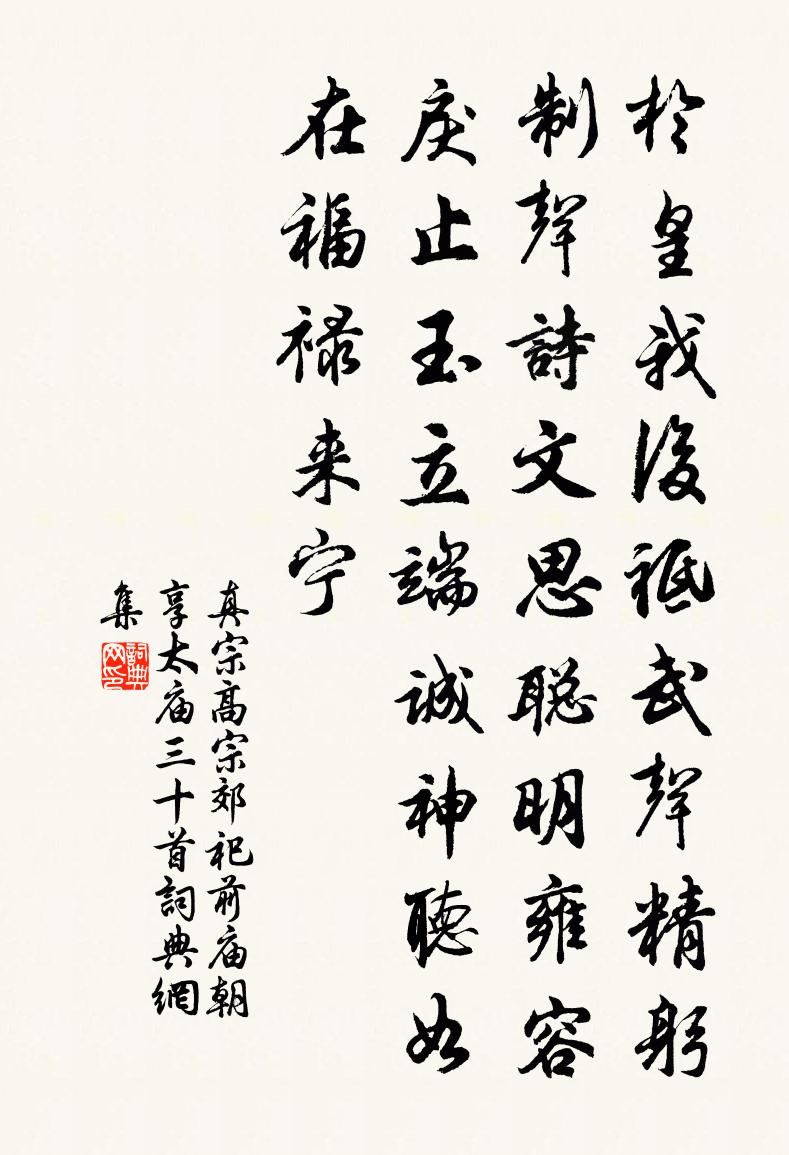 於皇我後祗武聲精躬
制聲詩文思聪明雍容
戾止玉立端誠神聴如
在福禄来宁
真宗高宗郊祀前庙朝
享太庙三十首詞典網
集
詞典网印